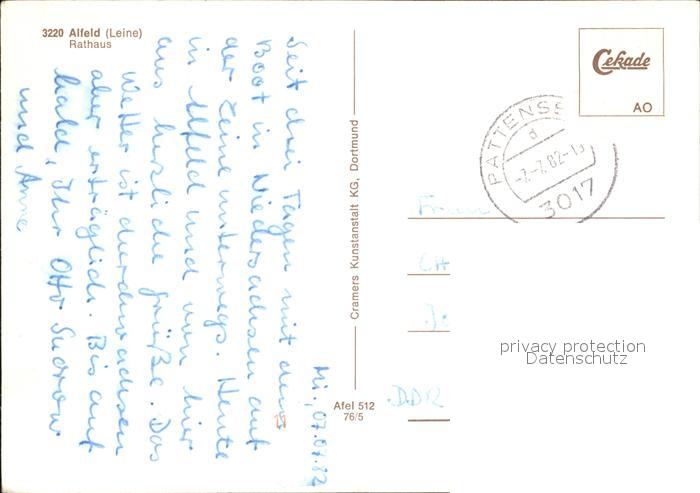 3220 Alfeld (Leine)
Rathaus
Mi., 07.07.82
Seit drei Tagen mit dem
Boot in Niedersachsen auf
der Leine unterwegs. Heute
in Alfeld und von hier
aus herzliche Grüße. Das
Wetter ist durchwachsen
aber erträglich. Bis auf
bald, Ihr Otto
und Anne
Cramers Kunstanstalt KG, Dortmund
Afel 512
76/5
Cekade
AO
PATTENS
d
-7.-7.82-
3017
DDR
privacy protection
Datenschutz